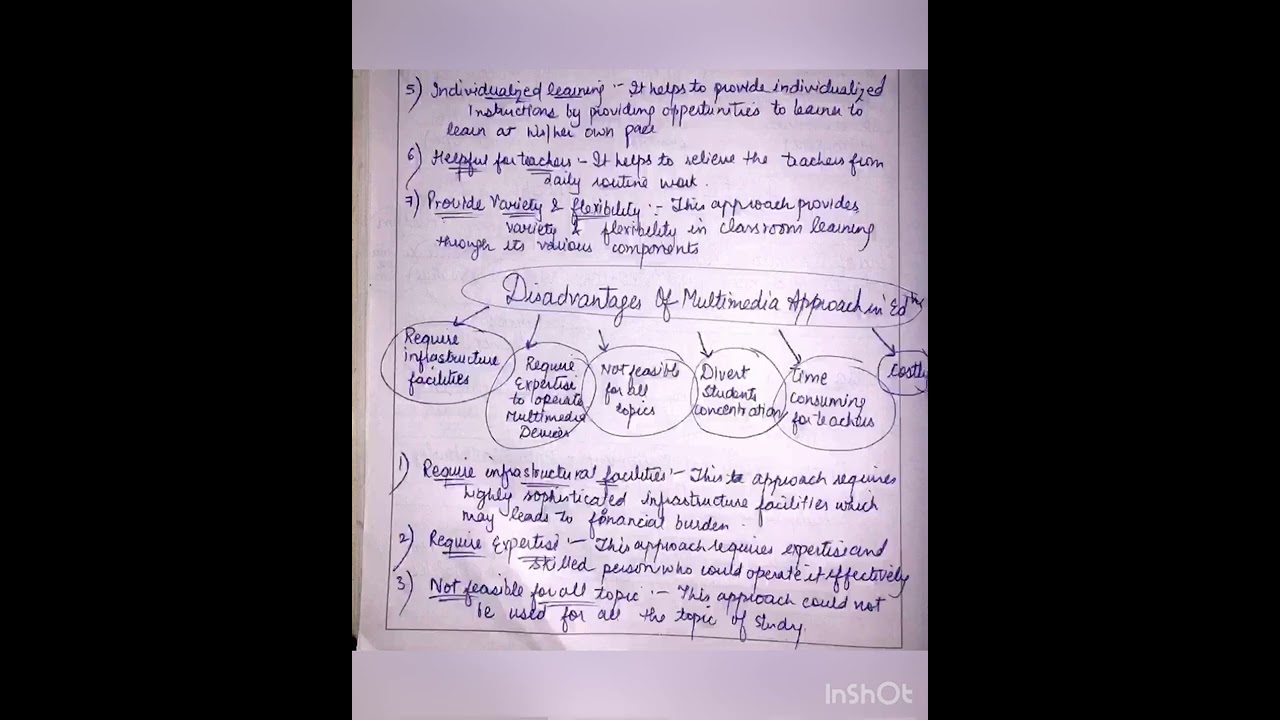 5) Individualized learning :- It helps to provide individualized
instructions by providing oppertunities to learner to
learn at his/her own pace
6) Helpful for teachers :- It helps to relieve the teachers from
daily routine work.
7) Provide Variety & flexibility :- This approach provides
variety & flexibility in classroom learning
through its various components
Disadvantages Of Multimedia Approach in Edtn
Require
infrastructure
facilities
Require
Expertise
to operate
Multimedia
Devices
Not feasible
for all
topics
Divert
Students
concentration
time
consuming
for teachers
Costly
1) Require infrastructural facilities :- This approach requires
highly sophisticated infrastructure facilities which
may leads to financial burden.
2) Require Expertise :- This approach requires expertise and
skilled person who could operate it effectively
3) Not feasible for all topic :- This approach could not
be used for all the topic of study.
InShOt